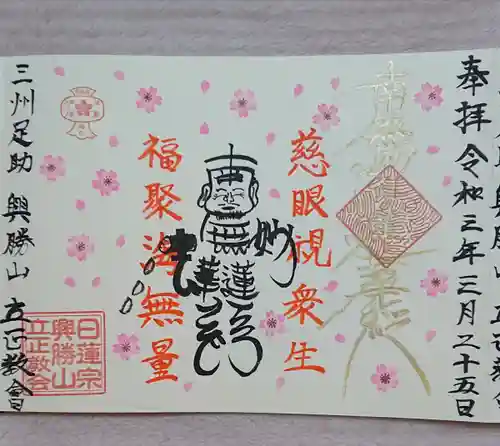 奉拝 令和三年三月二十五日
南無妙法蓮華経
慈眼視衆生
南無妙法蓮華経
福聚海無量
三州足助 興勝山 立正教会
日蓮宗
興勝山
立正教会